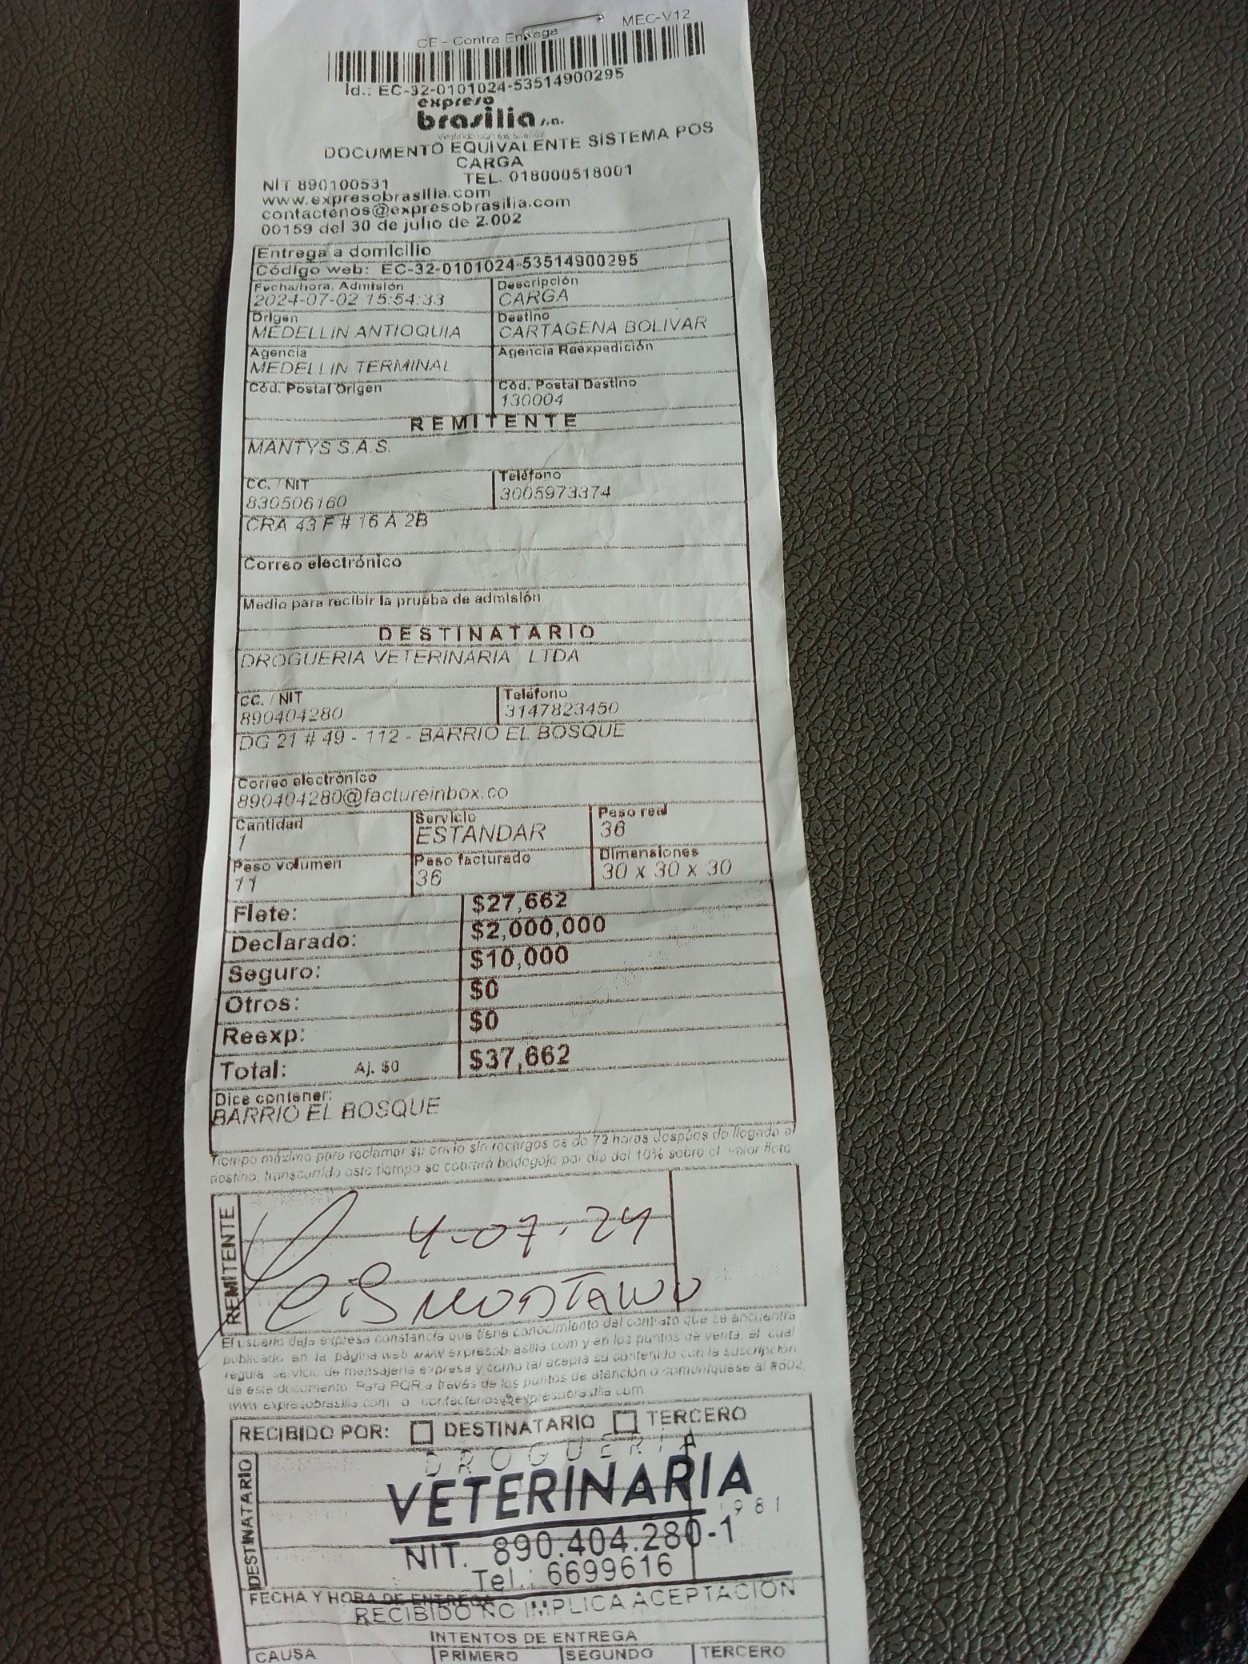 CE - Contra Entrega MEC-V12
Id.: EC-32-0101024-53514900295
expreso
brasilia s.a.
DOCUMENTO EQUIVALENTE SISTEMA POS
CARGA
NIT 890100531 TEL. 018000518001
www.expresobrasilia.com
contactenos@expresobrasilia.com
00159 del 30 de julio de 2.002
Entrega a domicilio
Código web: EC-32-0101024-53514900295
Fecha/hora, Admisión Descripción
2024-07-02 15:54:33 CARGA
Origen Destino
MEDELLIN ANTIOQUIA CARTAGENA BOLIVAR
Agencia Agencia Reexpedición
MEDELLIN TERMINAL
Cód. Postal Origen Cód. Postal Destino
130004
REMITENTE
MANTYS S.A.S.
CC. / NIT Teléfono
830506160 3005973374
CRA 43 F # 16 A 2B
Correo electrónico
Medio para recibir la prueba de admisión
DESTINATARIO
DROGUERIA VETERINARIA LTDA
CC. / NIT Teléfono
890404280 3147823450
DG 21 # 49 - 112 - BARRIO EL BOSQUE
Correo electrónico
890404280@factureinbox.co
Cantidad Servicio Peso real
1 ESTANDAR 36
Peso volumen Peso facturado Dimensiones
11 36 30 x 30 x 30
Flete: $27,662
Declarado: $2,000,000
Seguro: $10,000
Otros: $0
Reexp: $0
Total: Aj. $0 $37,662
Dice contener:
BARRIO EL BOSQUE
Tiempo máximo para reclamar su envío sin recargos es de 72 horas después de llegada al
destino, transcurrido este tiempo se cobrará bodegaje por día del 10% sobre el valor flete
REMITENTE
4-07-24
El usuario deja expresa constancia que tiene conocimiento del contrato que se encuentra
publicado en la página web www.expresobrasilia.com y en los puntos de venta, el cual
regula servicio de mensajería expresa y como tal acepta su contenido con la suscripción
de este documento. Para PQR a través de los puntos de atención o comuníquese al #602,
www.expresobrasilia.com o contactenos@expresobrasilia.com
RECIBIDO POR: DESTINATARIO TERCERO
DESTINATARIO
DROGUERIA
VETERINARIA
1981
NIT. 890.404.280-1
Tel.: 6699616
FECHA Y HORA DE ENTREGA
RECIBIDO NO IMPLICA ACEPTACION
INTENTOS DE ENTREGA
CAUSA PRIMERO SEGUNDO TERCERO